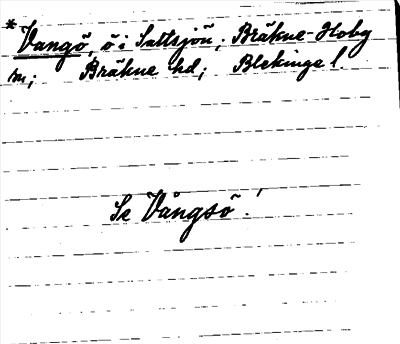 *Vangö, ö i Saltsjön; Bräkne-Hoby
m; Bräkne hd; Blekinge l.
Se Vångsö!